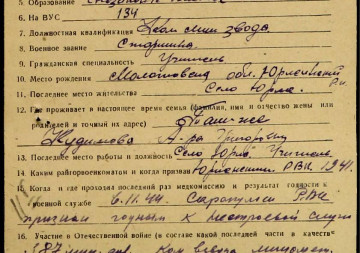 5. Образование
6. На ВУС 134
7. Должностная квалификация Ком. мин. взвода
8. Военное звание Старшина
9. Гражданская специальность Учитель
10. Место рождения Молотовск. обл. Юрлинский р-н
11. Последнее место жительства Село Юрла
12. Где проживает в настоящее время семья (фамилия, имя и отчество жены или
родителей и точный их адрес) Там-же
Кудимова
13. Последнее место работы и должность Село Юрла Учитель
14. Каким райгорвоенкоматом и когда призван Юрлинским РВК 1941
15. Когда и где проходил последний раз медкомиссию и результат годности к
военной службе 6.11.44. Сарапульск. РВК
признан годным к нестроевой службе
16. Участие в Отечественной войне (в составе какой последней части в качестве
Ком взвода миномет.